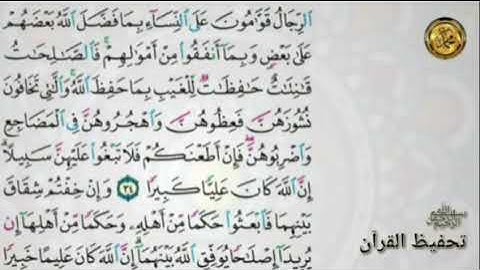 الرِّجَالُ قَوَّامُونَ عَلَى النِّسَاءِ بِمَا فَضَّلَ اللَّهُ بَعْضَهُمْ
عَلَى بَعْضٍ وَبِمَا أَنفَقُوا مِنْ أَمْوَالِهِمْ فَالصَّالِحَاتُ
قَانِتَاتٌ حَافِظَاتٌ لِّلْغَيْبِ بِمَا حَفِظَ اللَّهُ وَالَّتِي تَخَافُونَ
نُشُوزَهُنَّ فَعِظُوهُنَّ وَاهْجُرُوهُنَّ فِي الْمَضَاجِعِ
وَاضْرِبُوهُنَّ فَإِنْ أَطَعْنَكُمْ فَلَا تَبْغُوا عَلَيْهِنَّ سَبِيلًا
إِنَّ اللَّهَ كَانَ عَلِيًّا كَبِيرًا ٣٤ وَإِنْ خِفْتُمْ شِقَاقَ
بَيْنِهِمَا فَابْعَثُوا حَكَمًا مِّنْ أَهْلِهِ وَحَكَمًا مِّنْ أَهْلِهَا إِن
يُرِيدَا إِصْلَاحًا يُوَفِّقِ اللَّهُ بَيْنَهُمَا إِنَّ اللَّهَ كَانَ عَلِيمًا خَبِيرًا
تحفيظ القرآن